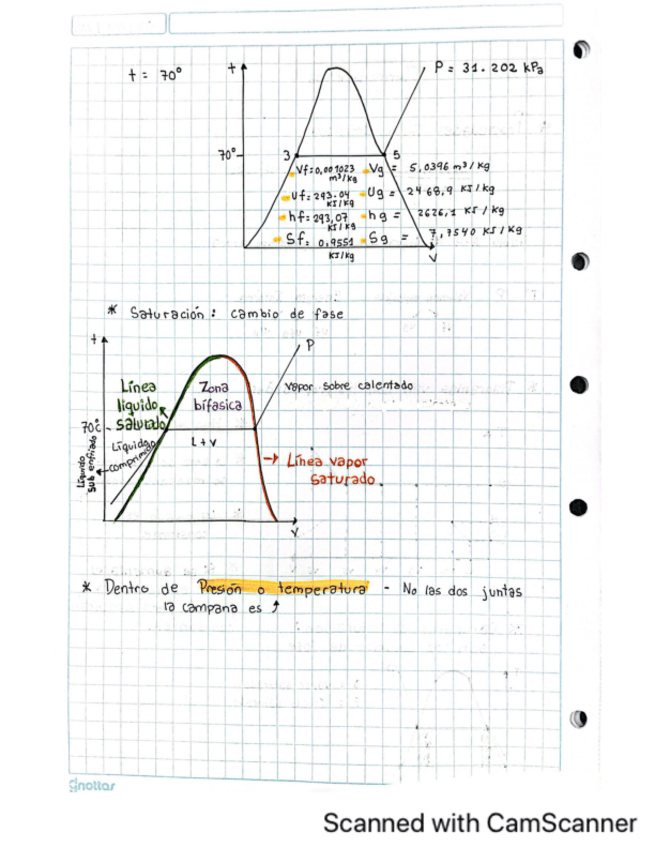 t = 70°
t
P = 31.202 kPa
70°
3
5
Vf=0,001023 m³/kg
Vg = 5,0396 m³/kg
Uf=293.04 KJ/kg
Ug = 2468,9 KJ/kg
hf=293,07 KJ/kg
hg = 2626,1 KJ/kg
Sf= 0,9551 KJ/kg
Sg = 7,7540 KJ/kg
V
* Saturación: cambio de fase
t
P
Línea líquido saturado
Zona bifasica
Vapor sobre calentado
70c
Líquido comprimido
Líquido sub enfriado
L+V
→ Línea vapor saturado.
V
* Dentro de Presión o temperatura - No las dos juntas
la campana es ↑
ginottas
Scanned with CamScanner